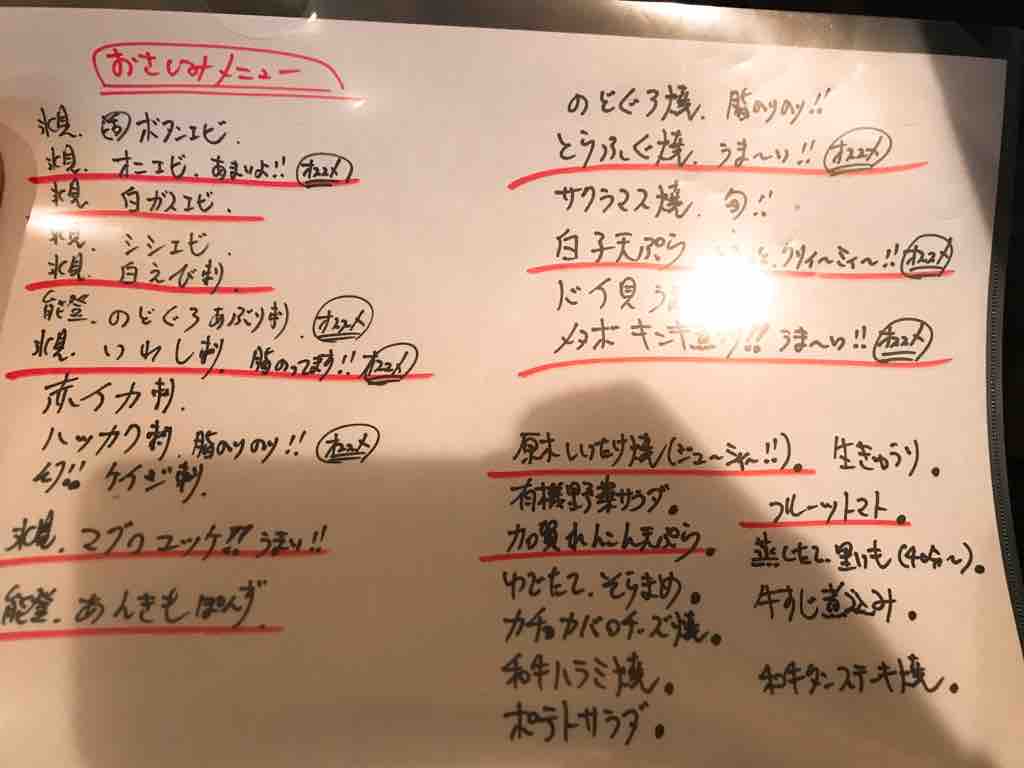 おさしみメニュー
氷見. 活 ボタンエビ.
氷見. オニエビ. あまいよ!! オススメ
氷見 白ガスエビ.
氷見. シシエビ.
氷見. 白えび刺.
能登. のどぐろあぶり刺. オススメ
氷見. いわし刺. 脂のってます!! オススメ
赤イカ刺.
ハッカク刺. 脂のりのり!! オススメ
幻!! ケイジ刺.
氷見. マグロユッケ!! うまい!!
能登. あんきもぽんず.
のどぐろ焼. 脂のりのり!!
とらふぐ焼. うま〜い!! オススメ
サクラマス焼. 旬!!
白子天ぷら クリィ〜ミィ〜!! オススメ
バイ貝
メタボキンキ煮付!! うま〜い!! オススメ
原木しいたけ焼(ジュ〜シィ〜!!)。
有機野菜サラダ。
加賀れんこん天ぷら。
ゆでたて、そらまめ。
カチョカバロチーズ焼。
和牛ハラミ焼。
ポテトサラダ。
生きゅうり。
フルーツトマト。
蒸したて、里いも(40分〜)。
牛すじ煮込み。
和牛タンステーキ焼。